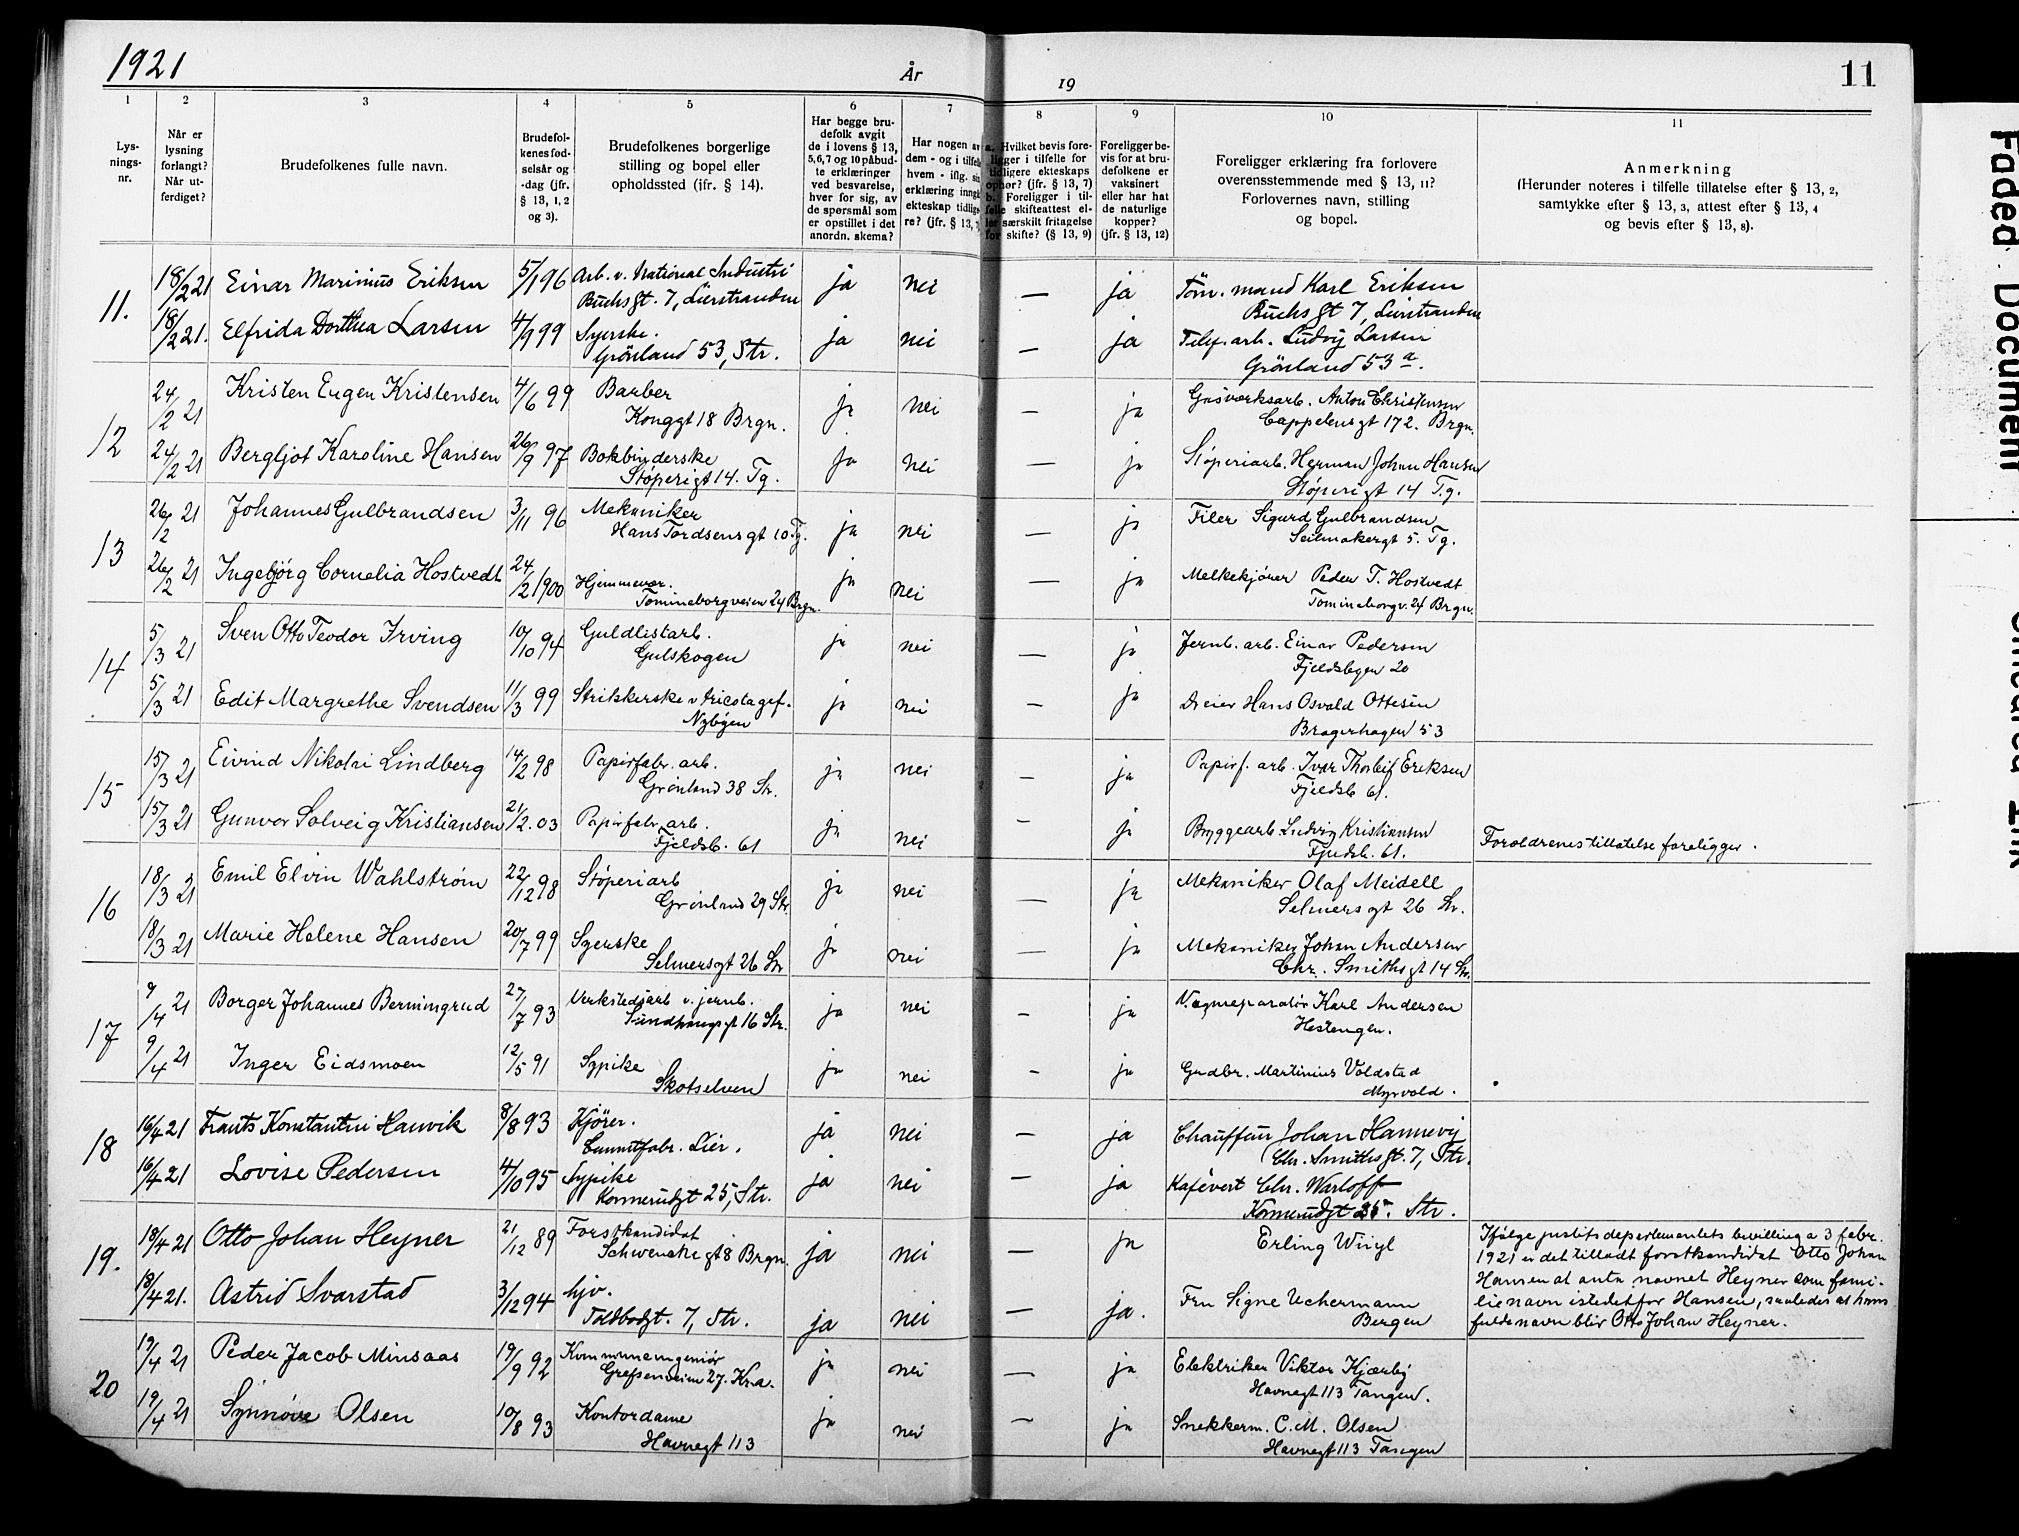 1921
År
19
11
1
2
3
4
5
6
7
8
9
10
11
Lys-
nings-
nr.
Når er
lysning
forlangt?
Når ut-
ferdiget?
Brudefolkenes fulle navn.
Brudefol-
kenes fød-
selsår og
-dag (jfr.
§ 13, 1, 2
og 3).
Brudefolkenes borgerlige
stilling og bopel eller
opholdssted (jfr. § 14).
Har begge bru-
defolk avgit
de i lovens § 13,
5,6,7 og 10 påbud-
te erklæringer
ved besvarelse,
hver for sig, av
de spørsmål som
er opstillet i det
anordn. skema?
Har nogen av
dem - og i tilfelle
hvem - iflg. sin
erklæring inngåt
ekteskap tidlige-
re? (jfr. § 13,
a. Hvilket bevis fore-
ligger i tilfelle for
tidligere ekteskaps
ophør? (jfr. § 13, 7)
b. Foreligger i til-
felle skifteattest el-
ler særskilt fritagelse
for skifte? (§ 13, 9)
Foreligger be-
vis for at bru-
defolkene er
vaksinert
eller har hat
de naturlige
kopper?
(jfr. § 13, 12)
Foreligger erklæring fra forlovere
overensstemmende med § 13, 11?
Forlovernes navn, stilling
og bopel.
Anmerkning
(Herunder noteres i tilfelle tillatelse efter § 13, 2,
samtykke efter § 13, 3, attest efter § 13, 4
og bevis efter § 13, 8).
11. 18/2 21 Einar Marinius Eriksen 5/1 96 Arb. v. National Industri ja nei — ja Töm. mand Karl Eriksen
Buchs gt. 7, Lierstranden Buchs gt 7, Lierstranden
18/2 21. Elfrida Dorthea Larsen 4/9 99 Syerske. ja nei — ja Telef. arb. Ludvig Larsen
Grönland 53, Str. Grönland 53 a.
12 24/2 21 Kristen Eugen Kristensen 4/6 99 Barber ja nei — ja Gasverksarb. Anton Christensen
Konggt 18 Brgn. Cappelens gt 172. Brgn.
24/2 21 Bergljot Karoline Hansen 26/9 97 Bokbinderske ja nei — ja Støperiarb. Herman Johan Hansen
Støperigt 14. Tg. Støperigt 14 Tg.
13 26/2 21 Johannes Gulbrandsen 3/11 96 Mekaniker ja nei — ja Filer Sigurd Gulbrandsen
Hans Tordsens gt 10 Tg. Seilmakergt 5. Tg.
26/2 21 Ingebjörg Cornelia Hostvedt 24/2 1900 Hjemmevær. ja nei — ja Melkekjörer Peder T. Hostvedt
Tomineborgveien 24 Brgn. Tomineborgv. 24 Brgn.
14 5/3 21 Sven Otto Teodor Irving 10/10 94 Guldlistarb. ja nei — ja Jernb. arb. Einar Pedersen
Gulskogen Fjeldsbygen 20
5/3 21 Edit Margrethe Svendsen 11/3 99 Strikkerske v tricotagef. ja nei — ja Dreier Hans Osvald Ottesen
Nybyen Bragerhagen 53
15 15/3 21 Eivind Nikolai Lindberg 14/2 98 Papirfabr. arb. ja nei — ja Papirf. arb. Ivar Thorleif Eriksen
Grönland 38 Str. Fjeldsb 61.
15/3 21 Gunvor Solveig Kristiansen 21/2. 03 Papirfabr. arb. ja nei — ja Bryggearb. Ludvig Kristiansen
Fjeldsb. 61 Fjeldsb. 61. Foroldrenes tillatelse foreligger.
16 18/3 21 Emil Elvin Wahlstrøm 22/12 98 Støperiarb ja nei — ja Mekaniker Olaf Meidell
Grönland 29 Str. Selmers gt 26 Str.
18/3 21 Marie Helene Hansen 20/7 99 Syerske ja nei — ja Mekaniker Johan Andersen
Selmersgt 26 Str Chr. Smiths gt 14 Str.
17 9/4 21 Borger Johannes Berningrud 27/7 93 Verkstedsarb v. jernb. ja nei — ja Vognreparatör Karl Andersen
Sundhaugsgt 16 Str. Hestengen.
9/4 21 Inger Eidsmoen 12/5 91 Sypike ja nei — ja Grdbr. Martinius Voldstad
Skotselven Myrvold.
18 16/4 21 Frants Konstantin Hanvik 8/8 93 Kjörer. ja nei — ja Chauffeur Johan Hannevig
Cementfabr. Lier. Chr. Smiths gt. 7, Str.
16/4 21 Lovise Pedersen 4/10 95 Sypike ja nei — ja Kafévert Chr. Warloff
Konnerudgt 25, Str. Konnerudgt 25. Str.
19. 18/4 21 Otto Johan Heyner 21/12 89 Forstkandidat ja nei — ja Erling
Schwencke gt 8 Brgn.
18/4 21. Astrid Svarstad 3/12 94 hjv. ja nei — ja. Fru Signe Uchermann
Toldbodgt. 7, Str. Bergen
Ifølge justitsdepartementets bevilling a 3 febr.
1921 er det tilladt forstkandidat Otto Johan
Hansen at anta navnet Heyner som fami-
lienavn istedetfor Hansen, saaledes at hans
fulde navn blir Otto Johan Heyner.
20 19/4 21 Peder Jacob Minsaas 19/9 92 Kommuneingeniör ja nei — ja Elektriker Viktor Kjærby
Grefsenveien 27. Kr.a. Havnegt 113 Tangen.
19/4 21 Synnøve Olsen 10/8 93 Kontordame ja nei — ja Snekkerm. C. M. Olsen
Havnegt 113 Havnegt 113 Tangen
Faded Document